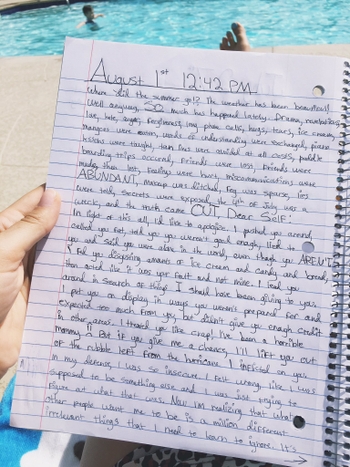 August 1st 12:42 PM
Where did the summer go!? The weather has been beautiful!
Well anyway, SO much has happened lately. Drama, manhunting,
love, hate, sugar, forgiveness, long phone calls, hugs, tears, ice cream,
manicures were worn, words of understanding were exchanged, piano
lessons were taught, tan lines were avoided at all costs, paddle
boarding trips occurred, friends were lost, friends were
made, then lost, feelings were hurt, miscommunications were
ABUNDANT, makeup was ditched, Feg was sparse, lies
were told, secrets were exposed, the 4th of July was a
wreck, and the truth came OUT. Dear Self:
In light of this all, I'd like to apologize. I pushed you around,
called you fat, told you you weren't good enough, lied to
you and said you were alone in the world, even though you AREN'T.
I fed you disgusting amounts of ice cream and candy and bread,
then acted like it was your fault and not mine. I lead you
around in search of things I should have been giving to you.
I put you on display in ways you weren't prepared for and
expected too much from you, but didn't give you enough credit
in other areas. I treated you like crap! I've been a horrible
mommy!! But if you give me a chance, I'll lift you out
of the rubble left from the hurricane I inflicted on you.
In my defense, I was so insecure. I felt wrong, like I was
supposed to be something else and I was just trying to
figure out what that was. Now I'm realizing that what
other people want me to be is a million different
irrelevant things that I need to learn to ignore. It's